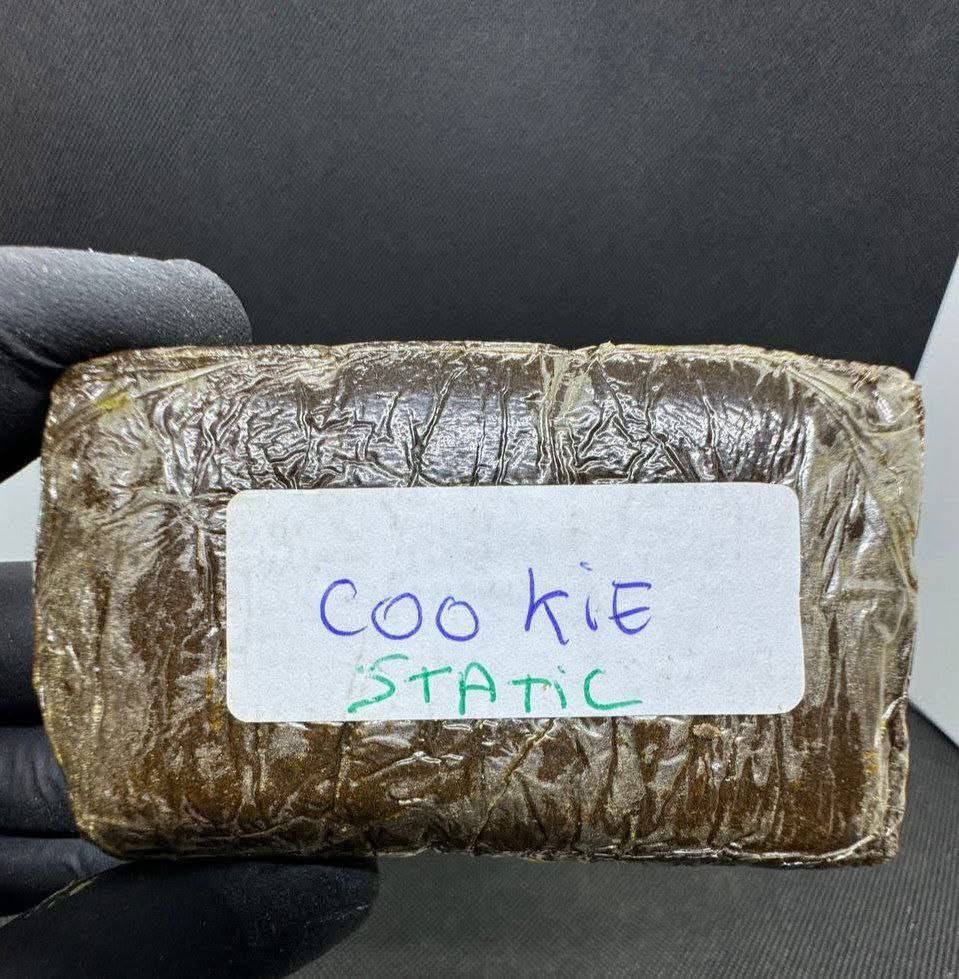 COOKiE
STATiC